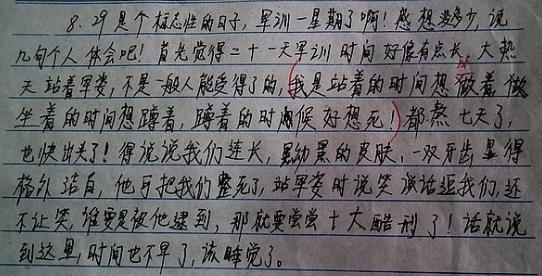 8.29是个标志性的日子，军训一星期了啊！感想没多少，说
几句个人体会吧！首先觉得二十一天军训时间好像有点长，大热
天站着军姿，不是一般人能受得了的，我是站着的时间想做着，做
坐着的时间想蹲着，蹲着的时候好想死！都熬七天了，
也快出头了！得说说我们连长，黑幼黑的皮肤，一双牙齿显得
格外洁白，他可把我们整死了，站军姿时说笑话逗我们，还
不让笑，谁要是被他逮到，那就要尝尝十大酷刑了！话就说
到这里，时间也不早了，该睡觉了。